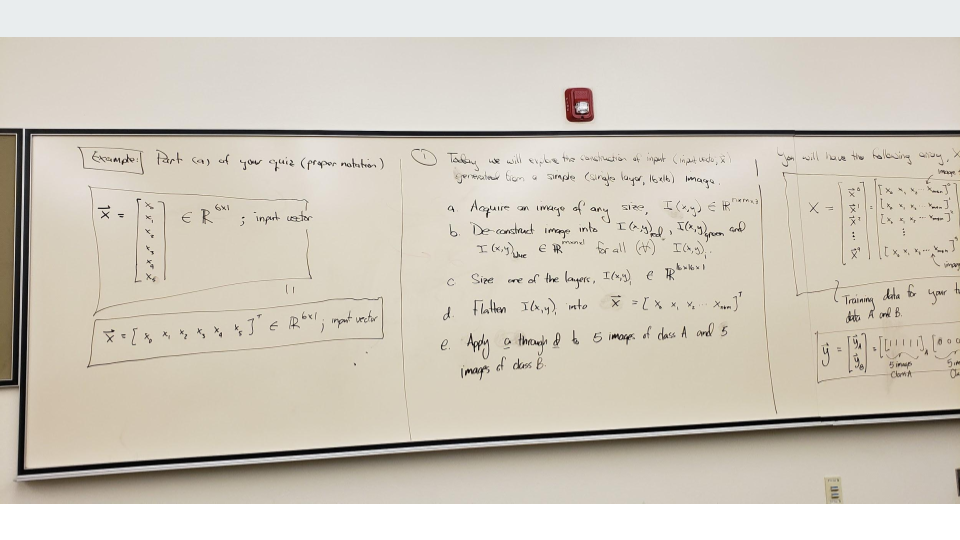 Example: Part (a) of your quiz (proper notation)
x⃗ = [x₀ x₁ x₂ x₃ x₄ x₅] ∈ ℝ^6x1 ; input vector
x⃗ = [x₀ x₁ x₂ x₃ x₄ x₅]ᵀ ∈ ℝ^6x1 ; input vector
① Today we will explore the construction of input (input vector, x⃗)
generated from a simple (single layer, 16x16) image.
a. Acquire an image of any size, I(x,y) ∈ ℝ^nxmx3
b. De-construct image into I(x,y)red, I(x,y)green and
I(x,y)blue ∈ ℝ^mxnx1 for all (∀) I(x,y)ᵢ.
c. Size one of the layers, I(x,y)ᵢ ∈ ℝ^16x16x1
d. Flatten I(x,y)ᵢ into x⃗ = [x₀ x₁ x₂ ... xₙₓₘ]ᵀ
e. Apply a through d to 5 images of class A and 5
images of class B.
You will have the following array, X
image
X = [x⃗⁰ x⃗¹ x⃗² ⋮ x⃗ⁿ] =
Training data for your
data A and B.
y⃗ = [y⃗A y⃗B] = [[1 1 1 1 1]A [0 0 0
5 images
Class A